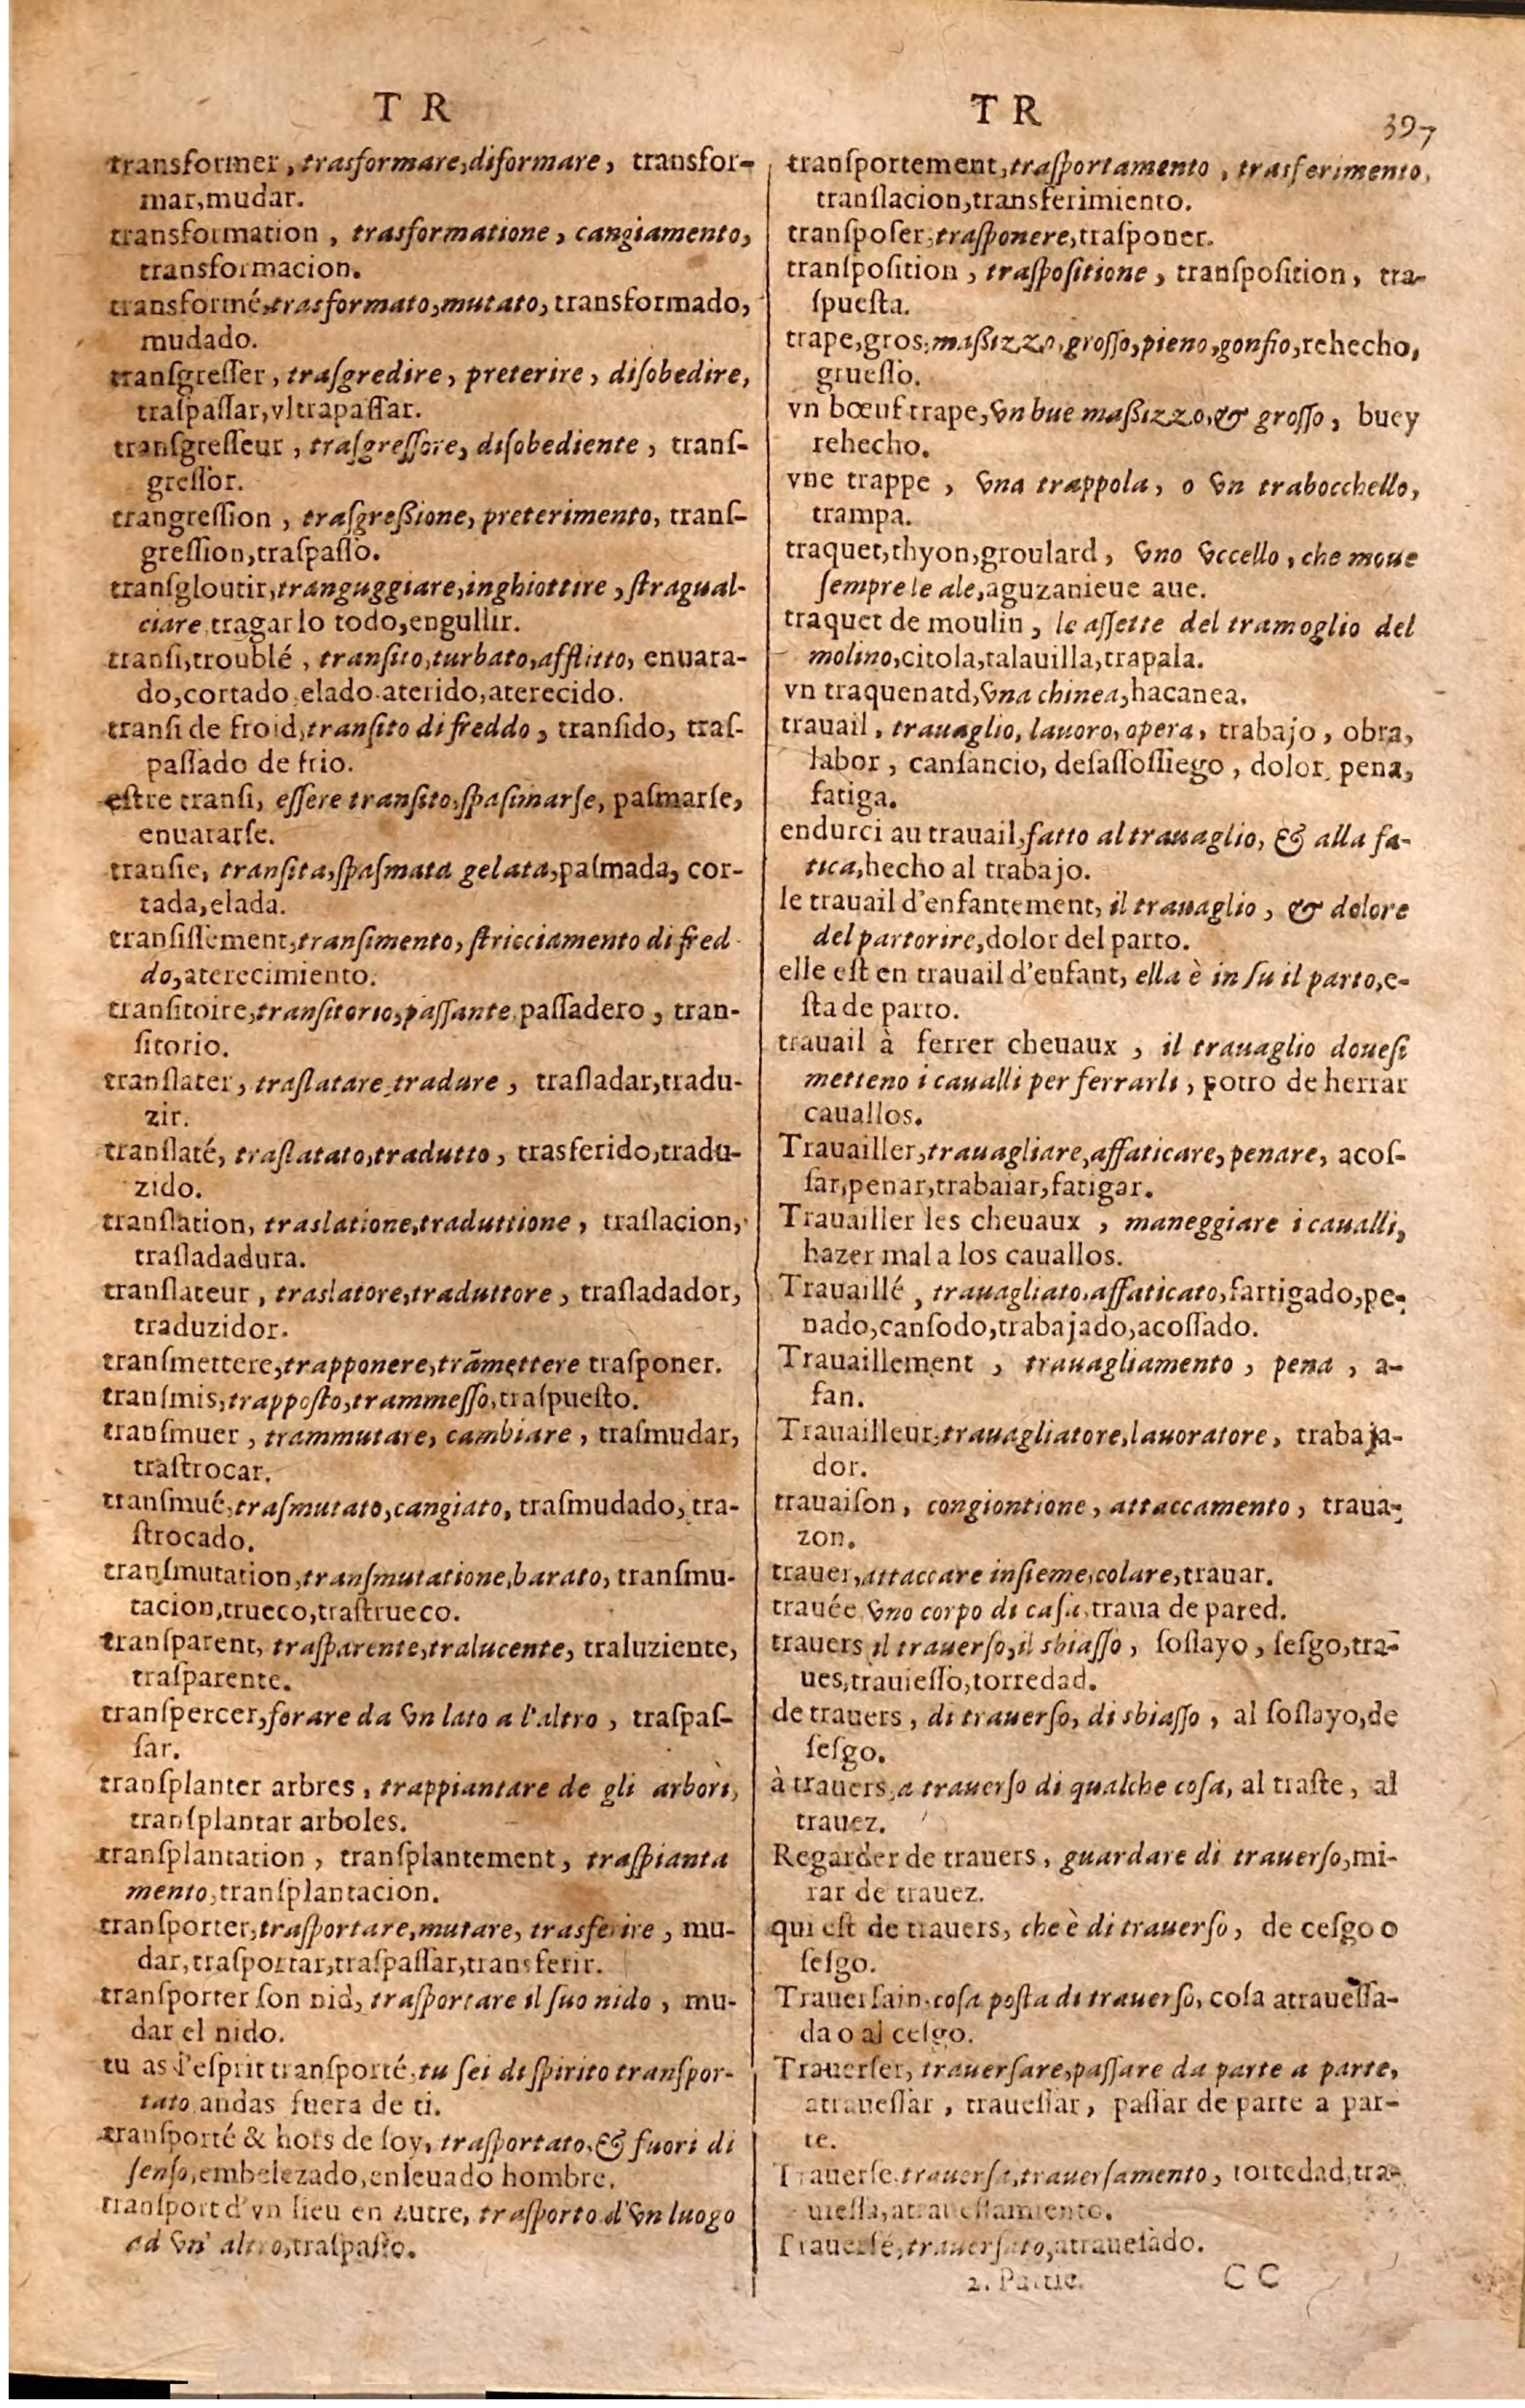 T R
transformer, trasformare, diformare, transfor-
mar, mudar.
transformation, trasformatione, cangiamento,
transformacion.
transformé, trasformato, mutato, transformado,
mudado.
tranſgreſſer, traſgredire, preterire, diſobedire,
traſpaſſar, vltrapaſſar.
tranſgreſſeur, traſgreſſore, diſobediente, tranſ-
greſſor.
trangreſſion, traſgreßione, preterimento, tranſ-
greſſion, traſpaſſo.
tranſgloutir, tranguggiare, inghiottire, ſtragual-
ciare, tragar lo todo, engullir.
tranſi, troublé, tranſito, turbato, afflitto, enuara-
do, cortado, elado, aterido, aterecido.
tranſi de froid, tranſito di freddo, tranſido, traſ-
paſſado de frio.
eſtre tranſi, eſſere tranſito, ſpaſimarſe, paſmarſe,
enuararſe.
tranſie, tranſita, ſpaſmata gelata, paſmada, cor-
tada, elada.
tranſiſſement, tranſimento, ſtricciamento di fred-
do, aterecimiento.
tranſitoire, tranſitorio, paſſante, paſſadero, tran-
ſitorio.
tranſlater, traſlatare, tradure, traſladar, tradu-
zir.
tranſlaté, traſlatato, tradutto, trasferido, tradu-
zido.
tranſlation, traslatione, traduttione, traſlacion,
traſladadura.
tranſlateur, traslatore, traduttore, traſladador,
traduzidor.
tranſmettere, trapponere, trãmettere traſponer.
tranſmis, trappoſto, trammeſſo, traſpueſto.
tranſmuer, trammutare, cambiare, traſmudar,
traſtrocar.
tranſmué, traſmutato, cangiato, traſmudado, tra-
ſtrocado.
tranſmutation, tranſmutatione, barato, tranſmu-
tacion, trueco, traſtrueco.
tranſparent, traſparente, tralucente, traluziente,
traſparente.
tranſpercer, forare da vn lato a l'altro, traſpaſ-
ſar.
tranſplanter arbres, trappiantare de gli arbori,
tranſplantar arboles.
tranſplantation, tranſplantement, traſpianta
mento, tranſplantacion.
tranſporter, traſportare, mutare, trasferire, mu-
dar, traſportar, traſpaſſar, transferir.
tranſporter ſon nid, traſportare il ſuo nido, mu-
dar el nido.
tu as l'eſprit tranſporté, tu ſei di ſpirito tranſpor-
tato, andas fuera de ti.
tranſporté & hors de ſoy, traſportato, & fuori di
ſenſo, embelezado, enleuado hombre.
tranſport d'vn lieu en autre, traſporto d'vn luogo
ad vn' altro, traſpaſſo.
T R
397
tranſportement, traſportamento, trasferimento,
tranſlacion, transferimiento.
tranſpoſer, traſponere, traſponer.
tranſpoſition, traſpoſitione, tranſpoſition, tra-
ſpueſta.
trape, gros, maßizzo, groſſo, pieno, gonfio, rehecho,
grueſſo.
vn bœuf trape, vn bue maßizzo, & groſſo, buey
rehecho.
vne trappe, vna trappola, o vn trabocchello,
trampa.
traquet, thyon, groulard, vno vccello, che moue
ſempre le ale, aguzanieue aue.
traquet de moulin, le aſſette del tramoglio del
molino, citola, talauilla, trapala.
vn traquenatd, vna chinea, hacanea.
trauail, trauaglio, lauoro, opera, trabajo, obra,
labor, canſancio, deſaſſoſſiego, dolor, pena,
fatiga.
endurci au trauail, fatto al trauaglio, & alla fa-
tica, hecho al trabajo.
le trauail d'enfantement, il trauaglio, & dolore
del partorire, dolor del parto.
elle eſt en trauail d'enfant, ella è in ſu il parto, e-
ſta de parto.
trauail à ferrer cheuaux, il trauaglio doueſi
metteno i caualli per ferrarli, potro de herrar
cauallos.
Trauailler, trauagliare, affaticare, penare, acoſ-
ſar, penar, trabaiar, fatigar.
Trauailler les cheuaux, maneggiare i caualli,
hazer mal a los cauallos.
Trauaillé, trauagliato, affaticato, fartigado, pe-
nado, canſodo, trabajado, acoſſado.
Trauaillement, trauagliamento, pena, a-
fan.
Trauailleur, trauagliatore, lauoratore, trabaja-
dor.
trauaiſon, congiontione, attaccamento, traua-
zon.
trauer, attaccare inſieme, colare, trauar.
trauée, vno corpo di caſa, traua de pared.
trauers, il trauerſo, il sbiaſſo, ſoſlayo, ſeſgo, tra-
ues, trauieſſo, torredad.
de trauers, di trauerſo, di sbiaſſo, al ſoſlayo, de
ſeſgo.
à trauers, a trauerſo di qualche coſa, al traſte, al
trauez.
Regarder de trauers, guardare di trauerſo, mi-
rar de trauez.
qui eſt de trauers, che è di trauerſo, de ceſgo o
ſeſgo.
Trauerſain, coſa poſta di trauerſo, coſa atraueſſa-
da o al ceſgo.
Trauerſer, trauerſare, paſſare da parte a parte,
atraueſſar, traueſſar, paſſar de parte a par-
te.
Trauerſe, trauerſa, trauerſamento, tortedad, tra-
uieſſa, atraueſſamiento.
Trauerſé, trauerſato, atraueſado.
2. Partie. CC